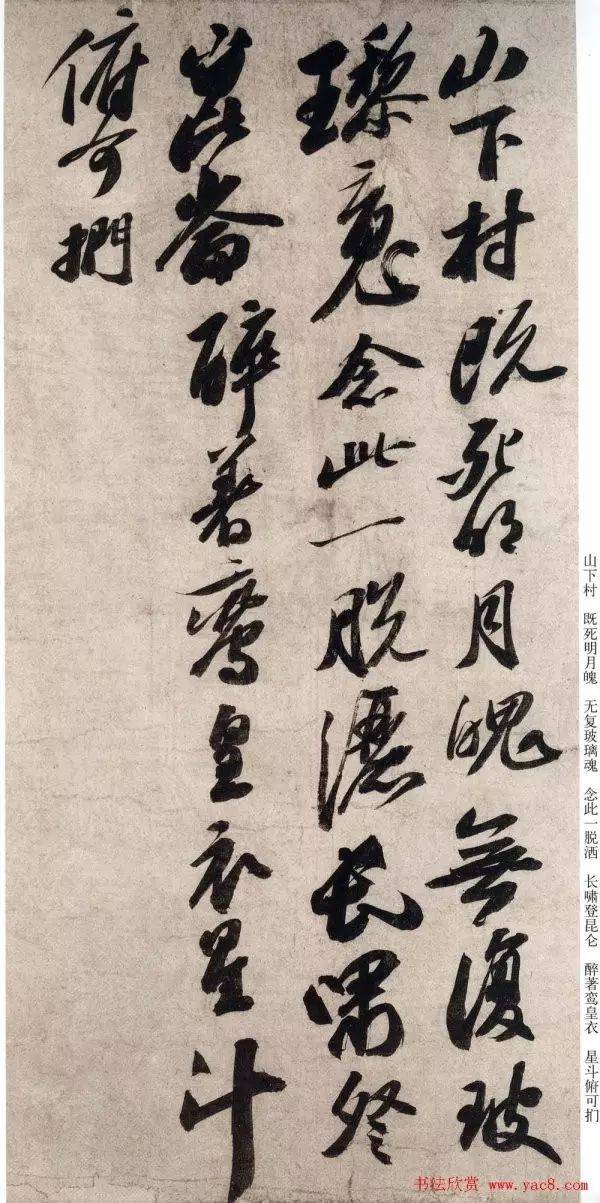 山下村既死明月魄無復玻
瓈魂念此一脫灑長嘯登
崑崙醉著鸞皇衣星斗
俯可捫
山下村 既死明月魄 无复玻璃魂 念此一脱洒 长啸登昆仑 醉著鸾皇衣 星斗俯可扪
书法欣赏 www.yac8.com